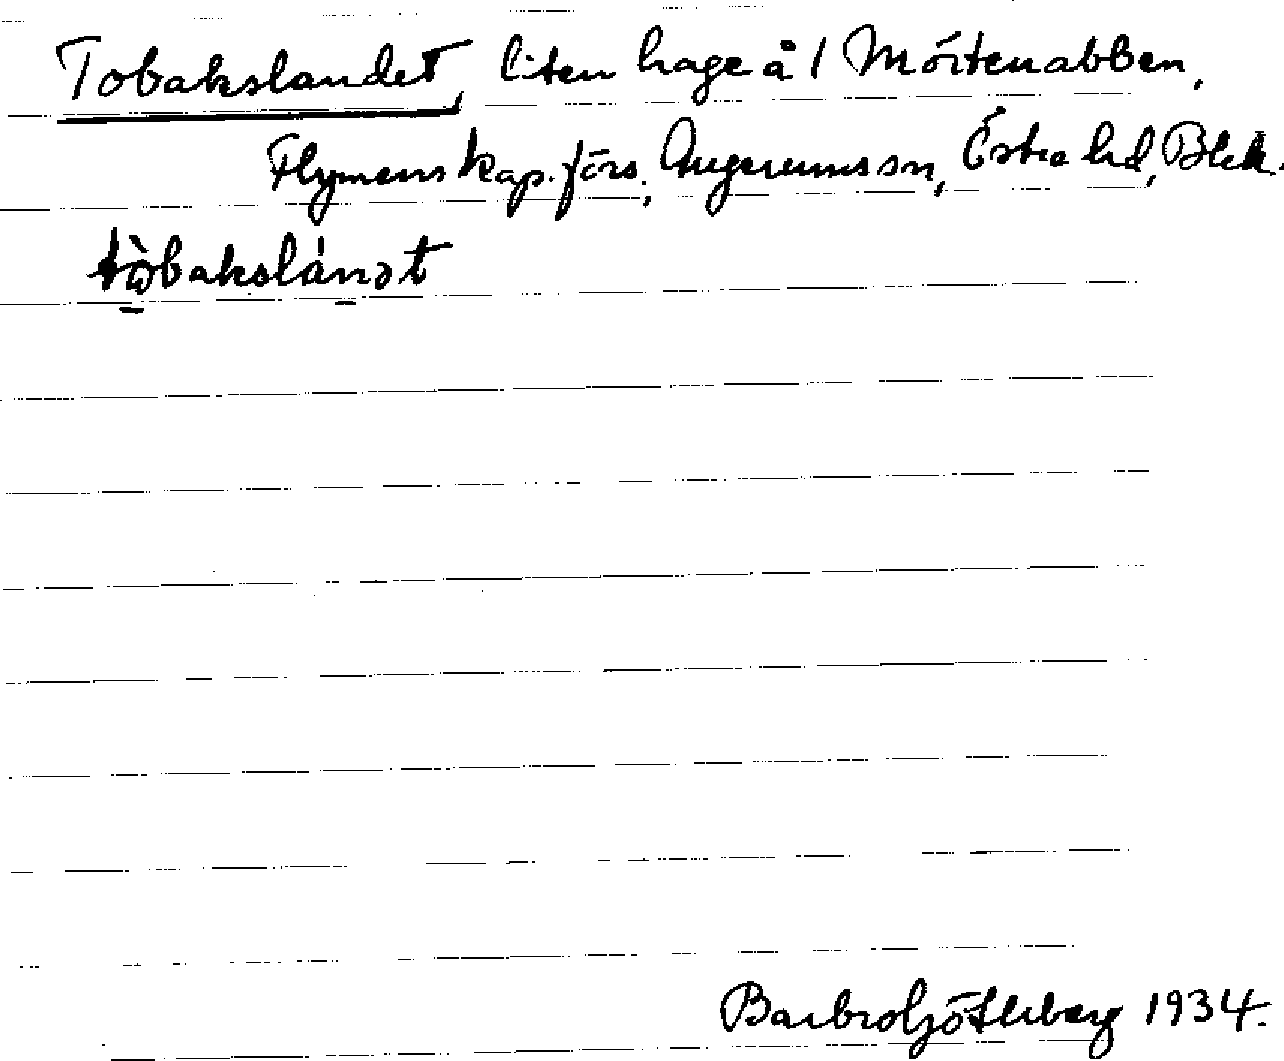 Tobakslandet, liten hage å 1 Mörtenabben,
Flymens kap.förs., Augerumssn, Östra hd, Blek.
tòbakslánət
Barbro Götleberg 1934.